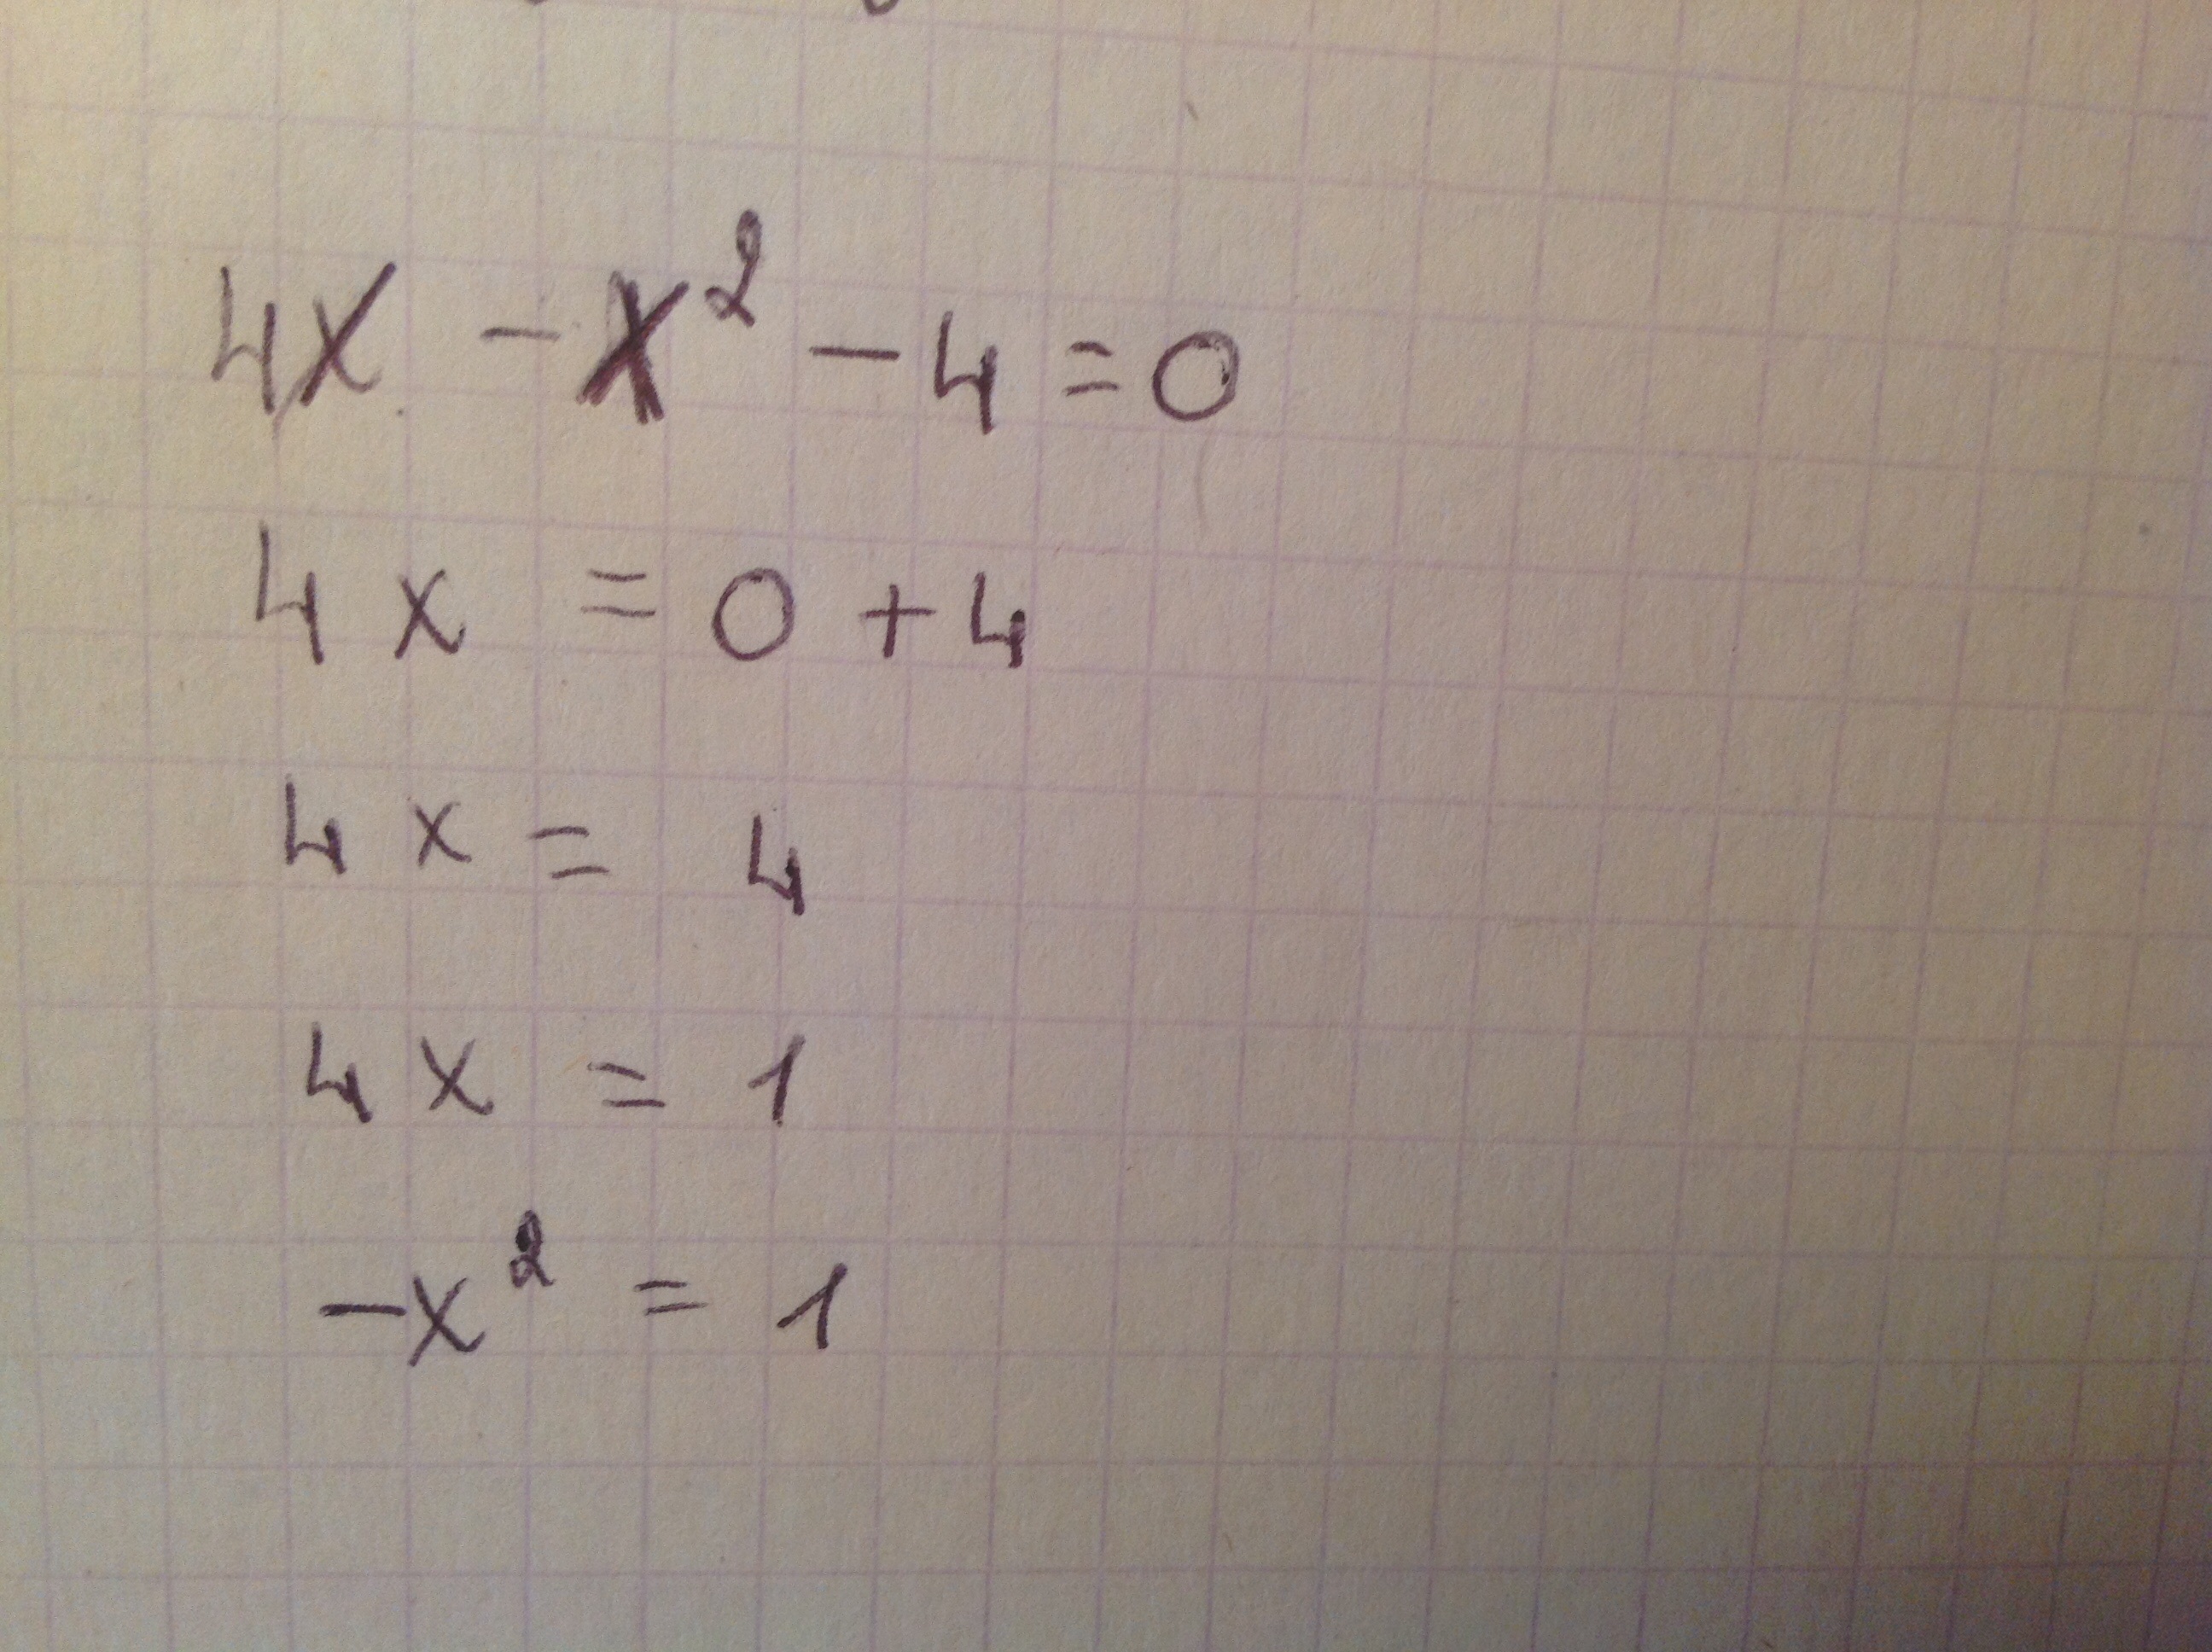 4x - x² - 4 = 0
4x = 0 + 4
4x = 4
4x = 1
-x² = 1